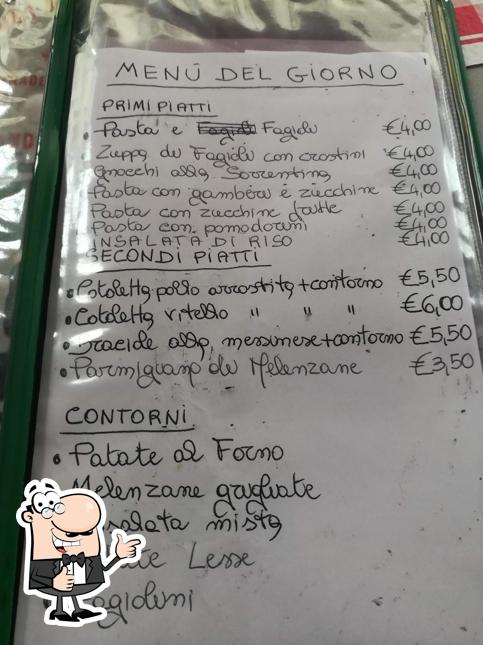 MENÙ DEL GIORNO
PRIMI PIATTI
• Pasta e Fagioli €4,00
Zuppa di Fagioli con crostini €4,00
gnocchi alla Sorrentina €4,00
Pasta con gamberi e zucchine €4,00
Pasta con zucchine fritte €4,00
Pasta con pomodorini €4,00
INSALATA DI RISO €4,00
SECONDI PIATTI
• Cotoletta pollo arrostita + contorno €5,50
• Cotoletta vitello " " " €6,00
• alla messinese + contorno €5,50
• Parmigiana di Melenzane €3,50
CONTORNI
• Patate al Forno
Melenzane grigliate
salata mista
Lesse
agiolini